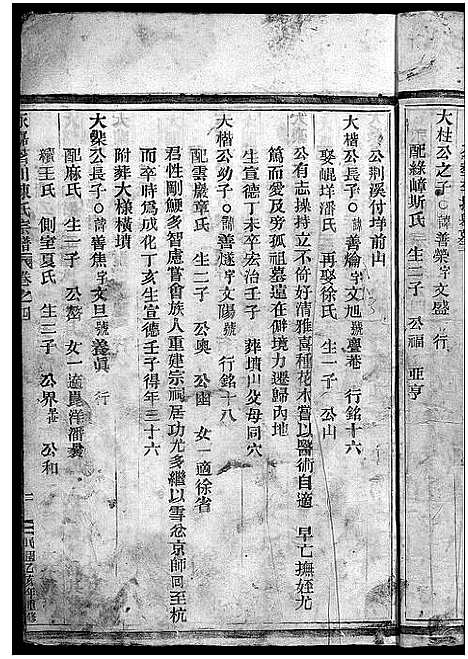 大柱公之子○諱善榮字文盛 行
配綠嶂斯氏 生二子 公祠 亞亨
公荆溪付垟前山
大楷公長子○諱善爚字文旭號 菴 行銘十六
娶崐垟潘氏 再娶徐氏 生一子 公山
公有志操持立不倚好清雅喜種花木嘗以醫術自適 早亡撫姪尤
篤而愛及旁孤祖墓遠在僻境力遷歸內地
生宣德丁未卒宏治壬子 葬墳 父母同穴
大楷公幼子○諱善煫字文陽號 行銘十八
配雲嚴章氏 生二子 公奥 公幽 女一適徐省
君性剛鯁多智慮嘗會族人重建宗祠居功尤多繼以雪忿京師回至杭
而卒時爲成化丁亥生宣德壬子得年三十六
附葬大樣橫墳
大榘公長子○諱善焦字文旦號養眞 行
配麻氏 生一子 公 女一適崑洋潘
續王氏 側室夏氏 生二子 公界 公和
永嘉 川陳氏宗譜 卷之四
民國乙亥年重修